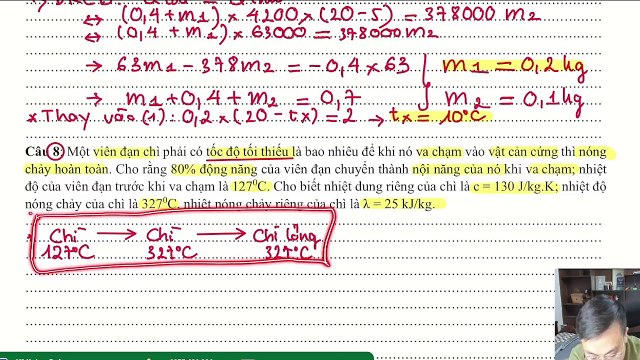 ⇔ (0,4 + m1) × 4200 × (20 - 5) = 378000 m2
⇔ (0,4 + m1) × 63000 = 378000 m2
→ 63m1 - 378m2 = -0,4 × 63 | m1 = 0,2 kg
→ m1 + 0,4 + m2 = 0,7 | m2 = 0,1 kg
* Thay vào (1): 0,2 × (20 - tx) = 2 → tx = 10°C
Câu 8: Một viên đạn chì phải có tốc độ tối thiểu là bao nhiêu để khi nó va chạm vào vật cản cứng thì nóng
chảy hoàn toàn. Cho rằng 80% động năng của viên đạn chuyển thành nội năng của nó khi va chạm; nhiệt
độ của viên đạn trước khi va chạm là 127⁰C. Cho biết nhiệt dung riêng của chì là c = 130 J/kg.K; nhiệt độ
nóng chảy của chì là 327⁰C, nhiệt nóng chảy riêng của chì là λ = 25 kJ/kg.
Chì → Chì → Chì lỏng
127°C 327°C 327°C